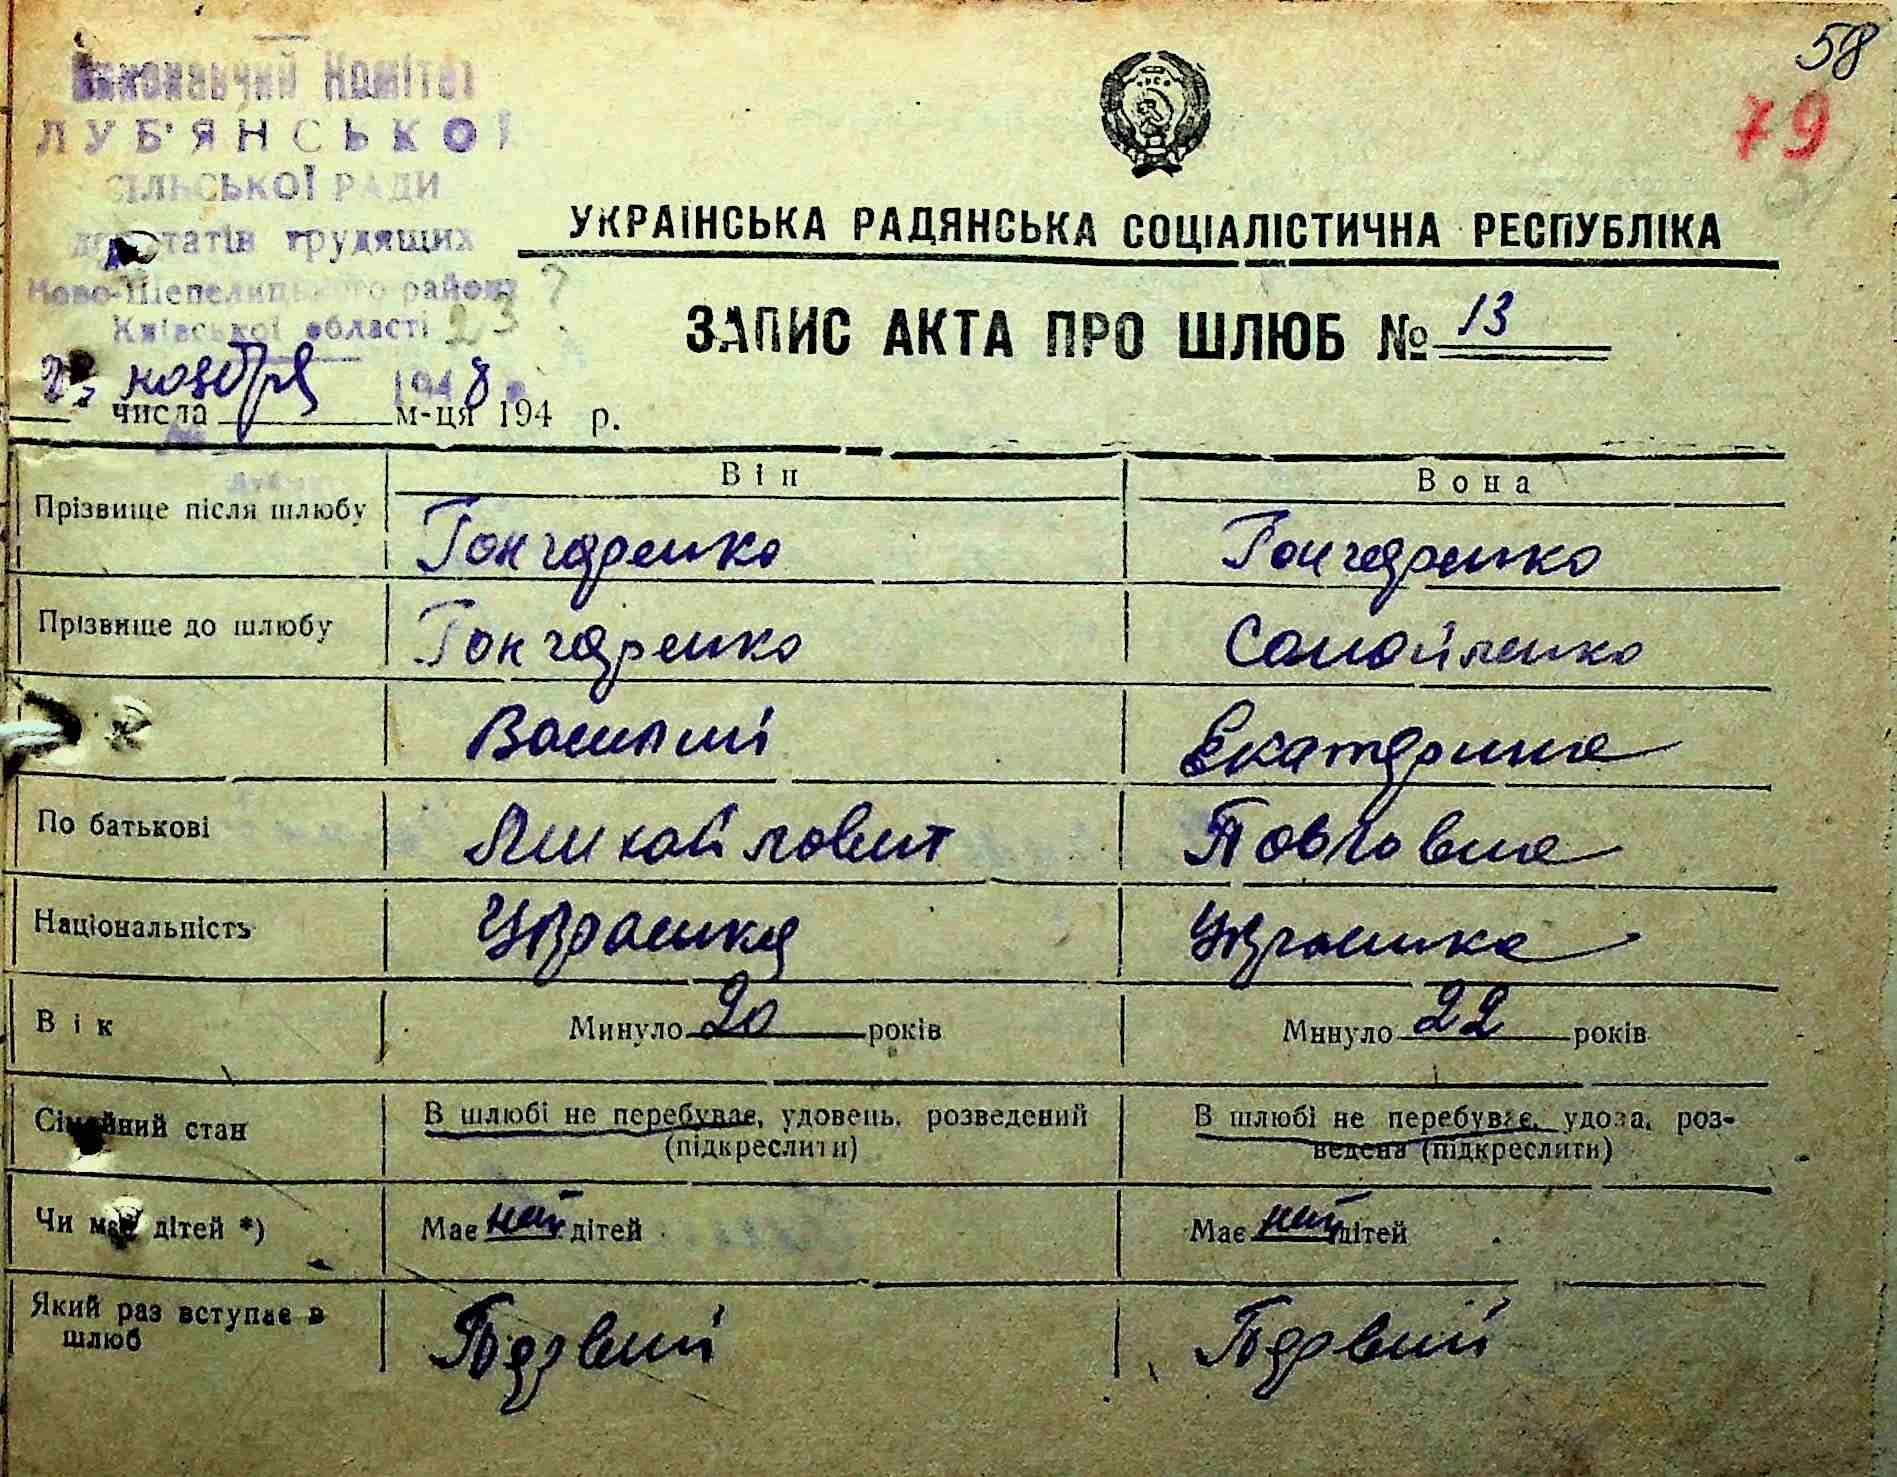 58
79
Виконавчий Комітет
ЛУБ'ЯНСЬКОЇ
СІЛЬСЬКОЇ РАДИ
депутатів трудящих
Ново-Шепелицького району
Київської області
237
УКРАЇНСЬКА РАДЯНСЬКА СОЦІАЛІСТИЧНА РЕСПУБЛІКА
ЗАПИС АКТА ПРО ШЛЮБ № 13
ноября 1948 г.
числа м-ця 194 р.
Він Вона
Прізвище після шлюбу Гончаренко Гончаренко
Прізвище до шлюбу Гончаренко Самойленко
Василий Екатерина
По батькові Михайлович Павловна
Національність Украинка
Вік Минуло 20 років Минуло 22 років
Сімейний стан В шлюбі не перебуває, удовець, розведений (підкреслити) В шлюбі не перебуває, удова, роз-
ведена (підкреслити)
Чи має дітей *) Має нет дітей Має нет дітей
Який раз вступає в
шлюб Первий Первий